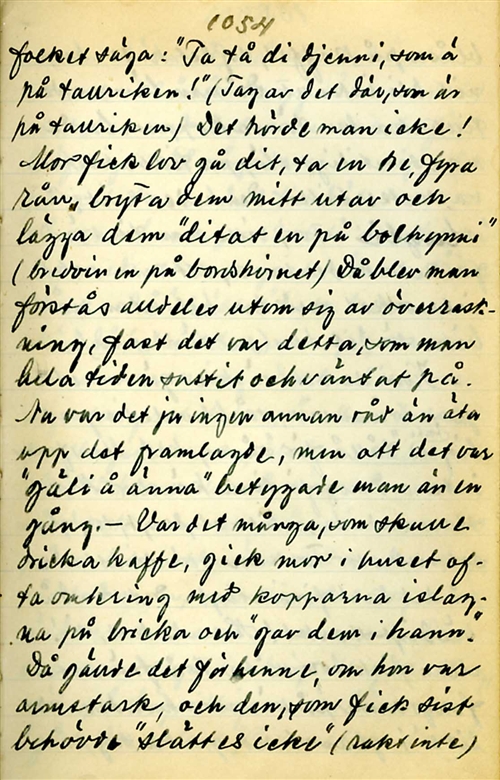 1054
folket säga: "Ta tå di djenni, som ä
på tallriken!" (Tag av det där, som är
på tallriken) Det hörde man icke!
Mor fick lov gå dit, ta en tre, fyra
rån, bryta dem mitt utav och
lägga dem "ditat en på bolhynni"
(bredvid en på bordshörnet) Då blev man
förstås alldeles utom sig av överrask-
ning, fast det var detta, som man
hela tiden suttit och väntat på.
Nu var det ju ingen annan råd än äta
upp det framlagde, men att det var
"gäli å änna" betygade man än en
gång. – Var det många, som skulle
dricka kaffe, gick mor i huset of-
ta omkring med kopparna islag-
na på bricka och "gav dem i hann."
Då gällde det för henne, om hon var
armstark, och den, som fick sist
behövde "slättes icke" (rakt inte)